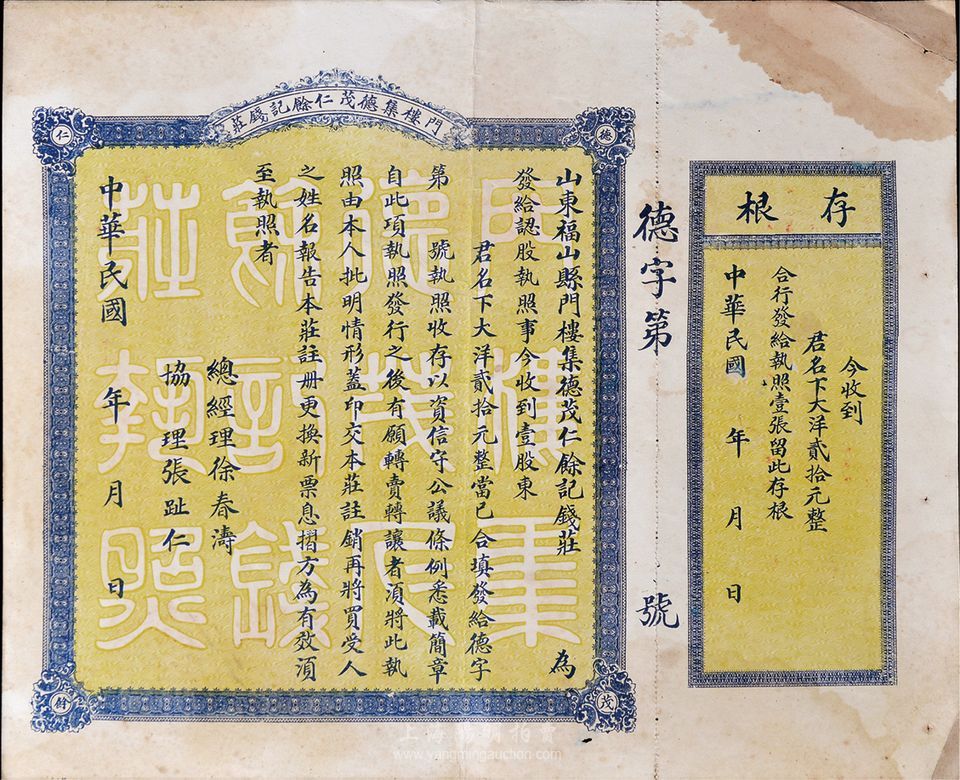 存根
今收到
君名下大洋貳拾元整
合行發給執照壹張留此存根
中華民國 年 月 日
德字第 號
門樓集德茂仁餘記錢莊
德
仁
茂
餘
山東福山縣門樓集德茂仁餘記錢莊 為
發給認股執照事今收到壹股東
君名下大洋貳拾元整當已合填發給德字
第 號執照收存以資信守公議條例悉載簡章
自此項執照發行之後有願轉賣轉讓者須將此執
照由本人批明情形蓋印交本莊註銷再將買受人
之姓名報告本莊註册更換新票息摺方為有效須
至執照者
總經理徐春濤
協理張趾仁
中華民國 年 月 日
門樓集
德茂仁
餘記錢
莊執照
上海陽明拍賣
www.yangmingauction.com